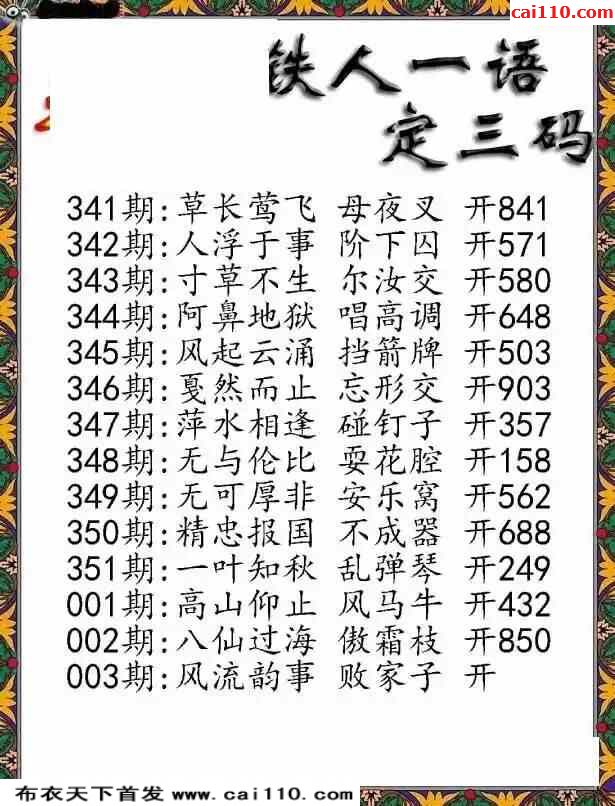 cai110.com
铁人一语
定三码
341期:草长莺飞 母夜叉 开841
342期:人浮于事 阶下囚 开571
343期:寸草不生 尔汝交 开580
344期:阿鼻地狱 唱高调 开648
345期:风起云涌 挡箭牌 开503
346期:戛然而止 忘形交 开903
347期:萍水相逢 碰钉子 开357
348期:无与伦比 耍花腔 开158
349期:无可厚非 安乐窝 开562
350期:精忠报国 不成器 开688
351期:一叶知秋 乱弹琴 开249
001期:高山仰止 风马牛 开432
002期:八仙过海 傲霜枝 开850
003期:风流韵事 败家子 开
布衣天下首发 www.cai110.com